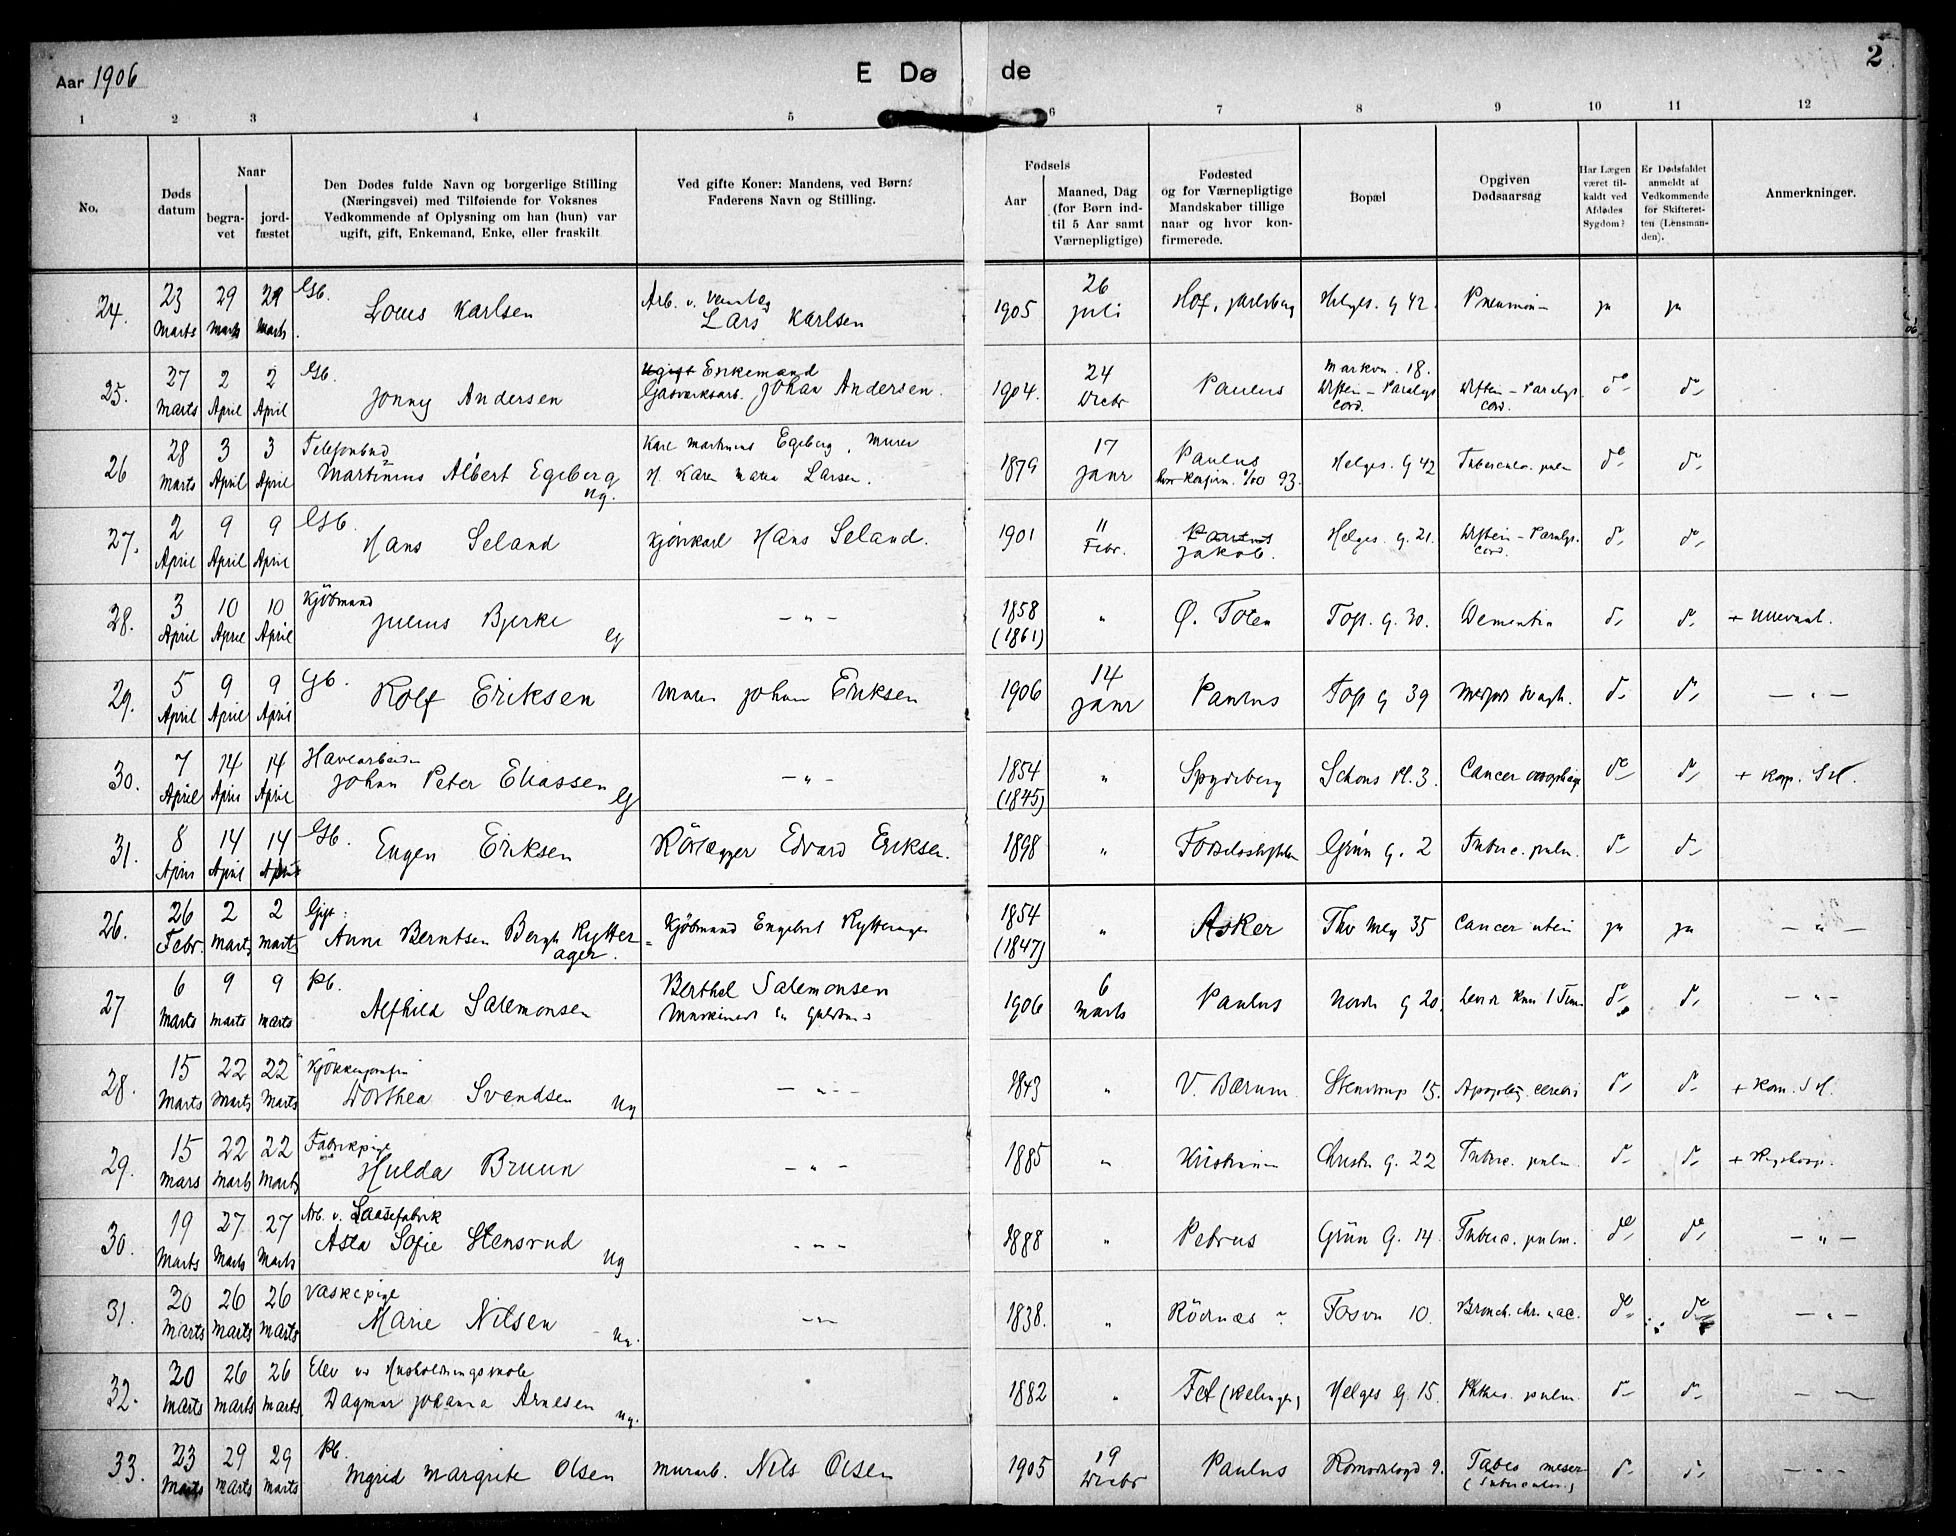 Aar 1906
E Dø de
2
1 2 3 4 5 6 7 8 9 10 11 12
No.
Døds datum
Naar
begravet
jordfæstet
Den Dødes fulde Navn og borgerlige Stilling
(Næringsvei) med Tilføiende for Voksnes
Vedkommende af Oplysning om han (hun) var
ugift, gift, Enkemand, Enke, eller fraskilt
Ved gifte Koner: Mandens, ved Børn:
Faderens Navn og Stilling.
Fødsels
Aar
Maaned, Dag
(for Børn ind-
til 5 Aar samt
Værnepligtige)
Fødested
og for Værnepligtige
Mandskaber tillige
naar og hvor kon-
firmerede.
Bopæl
Opgiven
Dødsaarsag
Har Lægen
været til-
kaldt ved
Afdødes
Sygdom?
Er Dødsfaldet
anmeldt af
Vedkommende
for Skifteret-
ten (Lensman-
den).
Anmerkninger.
24. 23 Marts 29 Marts 29 Marts Gb. Louis Karlsen Arb. v. Lars Karlsen 1905 26 Juli Hof, Jarlsberg Helges. g 42. Pneumoni ja ja
25. 27 Marts 2 April 2 April Gb. Jonny Andersen Ugift Enkemand Gasverksarb. Johan Andersen. 1904. 24 Decbr Paulus Markv. 18. Difteri – Paralys. cord. Difteri – Paralys. cord. do do
26 28 Marts 3 April 3 April Telefonbud Martinius Albert Egeberg ug. Karl Martinius Egeberg, murer H. Karen Maria Larsen. 1879 17 Janr Paulus Konfirm. 93. Helges. G 42 Tuberculos. pulm do do
27. 2 April 9 April 9 April Gb. Hans Seland Kjørekarl Hans Seland. 1901 11 Febr. Paulus Jakob. Helges. g. 21. Difteri – Paralys. cord. do do
28. 3 April 10 April 10 April Kjöbmand Julius Bjerke G – " – 1858 (1861) " Ø. Toten Tops. g. 30. Dementia do do + Ullevaal.
29. 5 April 9 April 9 April Gb. Rolf Eriksen Murer Johan Eriksen 1906 14 Janr Paulus Tops g 39 Medfødt Svagh. do do – " –
30. 7 April 14 April 14 April Havearbeider Johan Peter Eliassen G – " – 1854 (1845) " Spydeberg Schous Pl. 3. Cancer oesophag. do do + Kop. S H.
31. 8 April 14 April 14 April Gb. Eugen Eriksen Rörlægger Edvard Eriksen. 1898 " Fødselsstiftelsen Grün g. 2 Tuberc. pulm. do do
26. 26 Febr. 2 Marts 2 Marts Gift: Anna Berntsen Bergh Rytterager. Kjöbmand Engebret Rytterager 1854 (1847) " Asker Thv Mey 35 Cancer uteri ja ja – " –
27 6 Marts 9 Marts 9 Marts Pb. Alfhild Salemonsen Berthel Salemonsen 1906 6 Marts Paulus Nordr g 20. Levde kun 1 Time do do – " –
28. 15 Marts 22 Marts 22 Marts Kjøkkenjomfru Dorthea Svendsen Ug – " – 1843 " V. Bærum Stenstrup 15. Apoplexi cerebri do do + Kom. S H.
29. 15 Mars 22 Marts 22 Marts Fabrikpige Hulda Bruun – " – 1885 " Kristiania Christies G. 22 Tuberc. pulm. do do + Rigshosp.
30. 19 Marts 27 Marts 27 Marts Arb. v. Laasefabrik Asta Sofie Stensrud Ug – " – 1888 " Petrus Grün G. 14. Tuberc. pulm. do do – " –
31. 20 Marts 26 Marts 26 Marts Vaskepige Marie Nilsen Ug. – " – 1838. " Rödnæs Fosvn 10. Bronch. chr. & ac. do do – " –
32. 20 Marts 26 Marts 26 Marts Elev v. Husholdningsskole Dagmar Johanna Arnesen ug. " 1882 " Fet (Rælingen) Helges G. 15. Phthis. pulm. do do – " –
33. 23 Marts 29 Marts 29 Marts Pb. Ingrid Margrete Olsen Murarb. Nils Olsen 1905 19 Decbr Paulus 9. Tabes meser (Tuberculos.) do do – " –